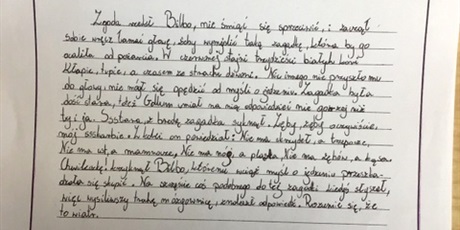 Zgoda rzekł Bilbo, nie śmiejąc się sprzeciwić, i zaczął
sobie więc łamać głowę, żeby wymyślić taką zagadkę, która by go
ocaliła od pożarcia. W czerwonej stajni trzydzieści białych koni
kłapie, tupie, a czasem ze strachu dzwoni. Nic innego nie przyszło mu
do głowy, nie mógł się opędzić od myśli o jedzeniu. Zagadka była
dość stara, toteż Gollum umiał na nią odpowiedzieć nie gorzej niż
ty i ja. Sostara, z brodą zagadka syknął. Zęby, zęby oczywiście,
mój ssskarbie. Z kolei on powiedział: Nie ma skrzydeł, a trzepocze,
Nie ma ust, a mamrocze, Nie ma nóg, a pląsa, Nie ma zębów, a kąsa.
Chwileczkę! krzyknął Bilbo, któremu wciąż myśl o jedzeniu przeszka-
dzała się skupić. Na szczęście coś podobnego do tej zagadki kiedyś słyszał,
więc wysiliwszy trochę mózgownicę, znalazł odpowiedź. Rozumie się, że
to wiatr.